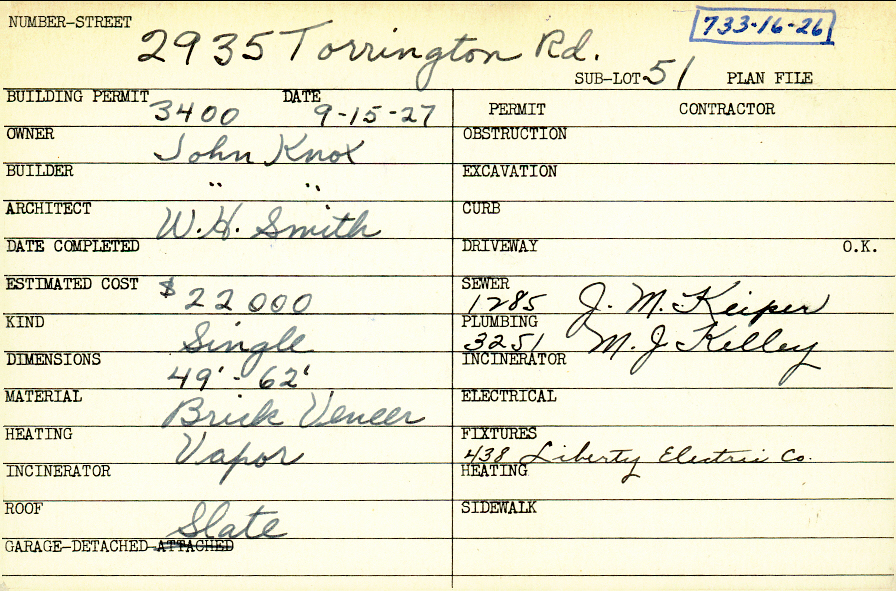 NUMBER-STREET
2935 Torrington Rd.
733-16-26
SUB-LOT 51 PLAN FILE
BUILDING PERMIT 3400 DATE 9-15-27
OWNER John Knox
BUILDER " "
ARCHITECT W.H. Smith
DATE COMPLETED
ESTIMATED COST $22000
KIND Single
DIMENSIONS 49'-62'
MATERIAL Brick Veneer
HEATING Vapor
INCINERATOR
ROOF Slate
GARAGE-DETACHED-ATTACHED
PERMIT CONTRACTOR
OBSTRUCTION
EXCAVATION
CURB
DRIVEWAY O.K.
SEWER
1285 J. M. Keiper
PLUMBING
3251 M. J Kelley
INCINERATOR
ELECTRICAL
FIXTURES
438 Liberty Electric Co.
HEATING
SIDEWALK